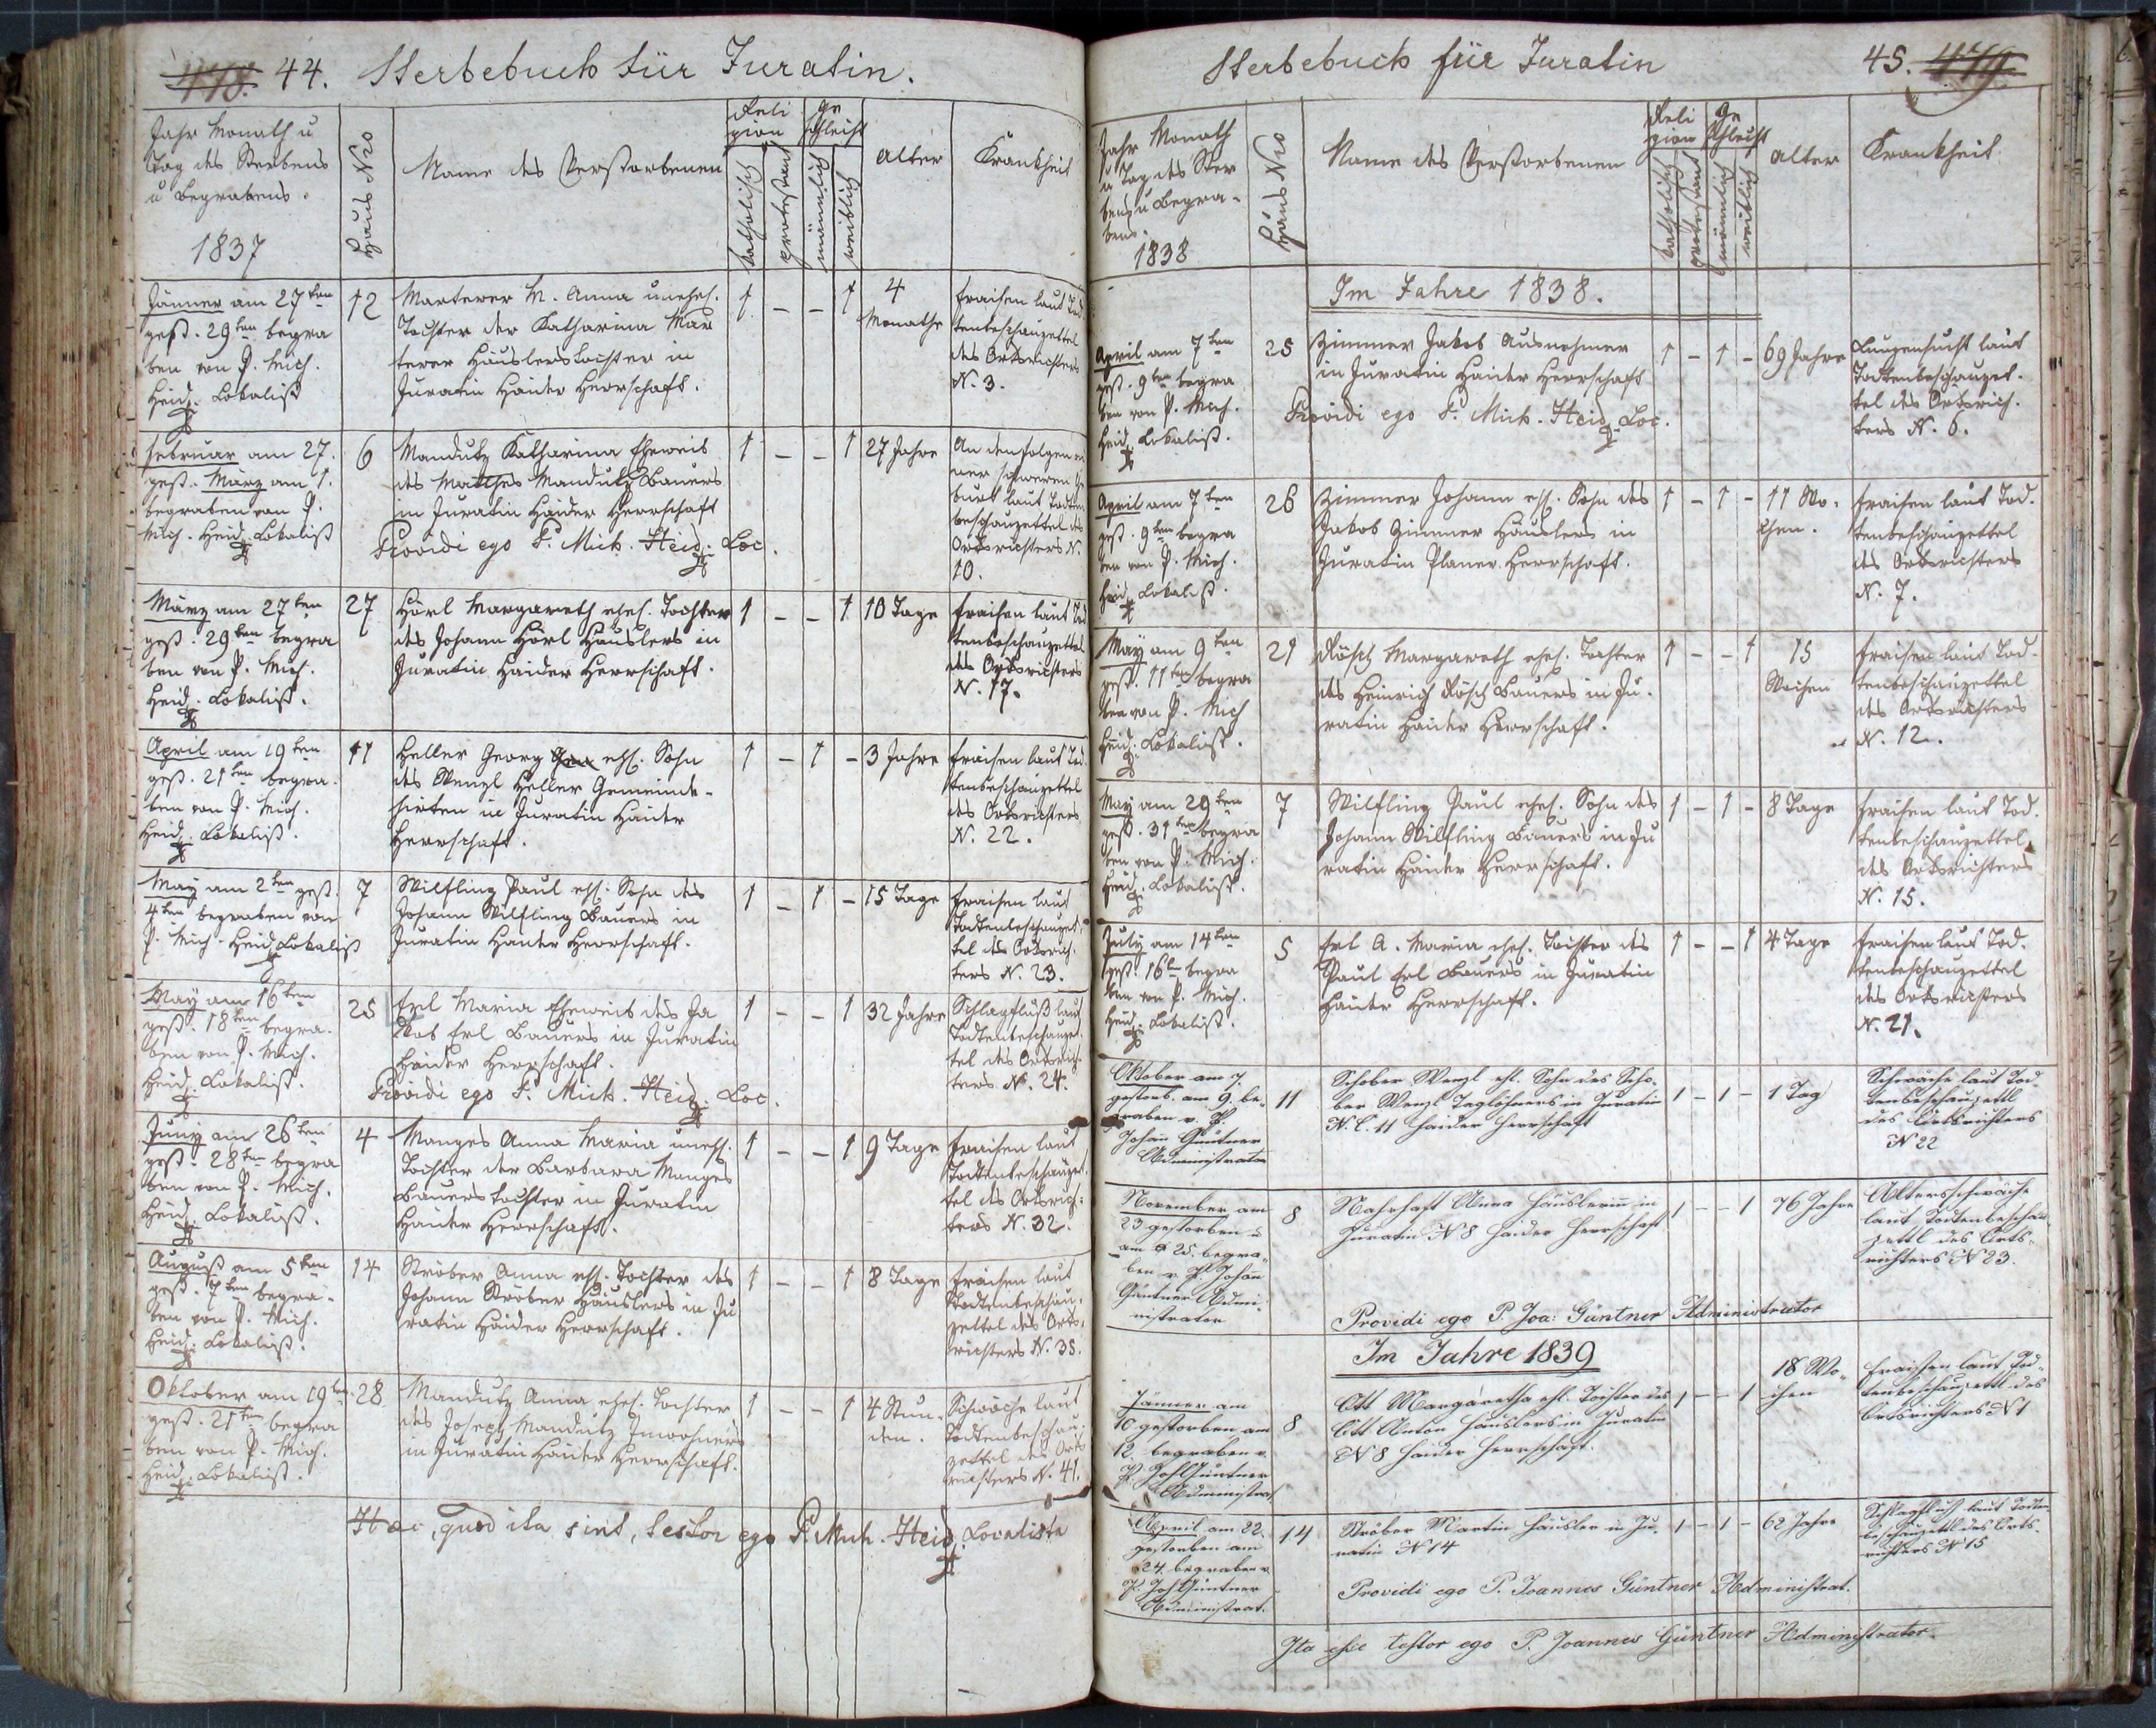 44. Sterbebuch für Juratin.
Jahr Monath u
Tag des Sterbens
u Begrabens.
1837
Haus Nro
Name des Verstorbenen
Reli
gion
katholisch
protestant
Ge
schlecht
männlich
weiblich
Alter
Krankheit
Jänner am 27ten
gest. 29ten begra
ben von P. Mich.
Heid. Lokalist
12
Marterer M. Anna unehel.
Tochter der Katharina Mar
terer Häuslerstochter in
Juratin Haider Herrschaft.
1 – – 1
4
Monathe
Fraisen laut Tod
tenbeschauzettel
des Ortsrichters
N. 3.
Februar am 27.
gest. März am 1.
begraben von P.
Mich. Heid. Lokalist
6
Mandutz Katharina Eheweib
des Mathes Mandutz Bauers
in Juratin Haider Herrschaft
Providi ego P. Mich. Heid. Loc.
1 – – 1
27 Jahre
An den Folgen ei
ner schweren Ge
burt laut Todten
beschauzettel des
Ortsrichters N.
10.
März am 27ten
gest. 29ten begra
ben von P. Mich.
Heid. Lokalist.
27
Hörl Margareth ehel. Tochter
des Johann Hörl Häuslers in
Juratin Haider Herrschaft.
1 – – 1
10 Tage
Fraisen laut Tod
tenbeschauzettel
des Ortsrichters
N. 17.
April am 19ten
gest. 21ten begra
ben von P. Mich.
Heid. Lokalist.
11
Heller Georg ehl. Sohn
des Wenzl Heller Gemeinde-
hirten in Juratin Haider
Herrschaft.
1 – 1 –
3 Jahre
Fraisen laut Tod
tenbeschauzettel
des Ortsrichters
N. 22.
May am 2ten gest.
4ten begraben von
P. Mich. Heid Lokalist
7
Wilfling Paul ehl. Sohn des
Johann Wilfling Bauers in
Juratin Haider Herrschaft.
1 – 1 –
15 Tage
Fraisen laut
Todtenbeschauzet
tel des Ortsrich
ters N. 23.
May am 16ten
gest. 18ten begra
ben von P. Mich.
Heid. Lokalist.
25
Erl Maria Eheweib des Ja
kob Erl Bauers in Juratin
Haider Herrschaft.
Providi ego P. Mich. Heid. Loc.
1 – – 1
32 Jahre
Schlagfluß laut
Todtenbeschauzet
tel des Ortsrich
ters N. 24.
Juny am 26ten
gest. 28ten begra
ben von P. Mich.
Heid. Lokalist.
4
Manges Anna Maria unehl.
Tochter der Barbara Manges
Bauerstochter in Juratin
Haider Herrschaft.
1 – – 1
9 Tage
Fraisen laut
Todtenbeschauzet
tel des Ortsrich
ters N. 32.
August am 5ten
gest. 7ten begra
ben von P. Mich.
Heid. Lokalist.
14
Ströber Anna ehl. Tochter des
Johann Ströber Häuslers in Ju
ratin Haider Herrschaft.
1 – – 1
8 Tage
Fraisen laut
Todtenbeschau
zettel des Orts
richters N. 35.
Oktober am 19ten
gest. 21ten begra
ben von P. Mich.
Heid. Lokalist.
28
Mandutz Anna ehel. Tochter
des Joseph Mandutz Inwohners
in Juratin Haider Herrschaft.
1 – – 1
4 Stun
den.
Schwäche laut
Todtenbeschau
zettel des Orts
richters N. 41.
Haec, quod ita sint, testor ego P. Mich. Heid. Localista
Sterbebuch für Juratin
45.
Jahr Monath
u Tag des Ster
bens u Begra-
bens.
1838
Haus Nro
Name des Verstorbenen
Reli
gion
katholisch
protestant
Ge
schlecht
männlich
weiblich
Alter
Krankheit
Im Jahre 1838.
April am 7ten
gest. 9ten begra
ben von P. Mich.
Heid. Lokalist.
25
Zimmer Jakob Ausnehmer
in Juratin Haider Herrschaft
Providi ego P. Mich. Heid. Loc.
1 – 1 –
69 Jahre
Lungensucht laut
Todtenbeschauzet-
tel des Ortsrich-
ters N. 6.
April am 7ten
gest. 9ten begra
ben von P. Mich.
Heid. Lokalist.
26
Zimmer Johann ehl. Sohn des
Jakob Zimmer Häuslers in
Juratin Planer Herrschaft.
1 – 1 –
11 Wo-
chen.
Fraisen laut Tod-
tenbeschauzettel
des Ortsrichters
N. 7.
May am 9ten
gest. 11ten begra
ben von P. Mich
Heid. Lokalist.
21
Rösch Margareth ehel. Tochter
des Heinrich Rösch Bauers in Ju-
ratin Haider Herrschaft.
1 – – 1
15
Wochen
Fraisen laut Tod-
tenbeschauzettel
des Ortsrichters
N. 12.
May am 29ten
gest. 31ten begra
ben von P. Mich.
Heid. Lokalist.
7
Wilfling Paul ehel. Sohn des
Johann Wilfling Bauers in Ju
ratin Haider Herrschaft.
1 – 1 –
8 Tage
Fraisen laut Tod-
tenbeschauzettel
des Ortsrichters
N. 15.
July am 14ten
gest. 16ten begra
ben von P. Mich.
Heid. Lokalist.
5
Erl A. Maria ehel. Tochter des
Paul Erl Bauers in Juratin
Haider Herrschaft.
1 – – 1
4 Tage
Fraisen laut Tod-
tenbeschauzettel
des Ortsrichters
N. 21.
Oktober am 7.
gestorb. am 9. be-
graben v. P.
Johan Güntner
Administrator
11
Schober Wenzl ehl. Sohn des Scho-
ber Wenzl Taglöhners in Juratin
N. C. 11 Haider Herrschaft
1 – 1 –
1 Tag
Schwäche laut Tod-
tenbeschauzettl
des Ortsrichters
N 22
November am
23 gestorben u
am 25. begra-
ben v. P. Johan
Güntner Admi-
nistrator
8
Nahrhaft Anna Häuslerin in
Juratin N 8 Haider Herrschaft
1 – – 1
76 Jahre
Altersschwäche
laut Todtenbeschau-
zettl des Orts-
richters N 23.
Providi ego P. Joa: Güntner Administrator
Im Jahre 1839
Jänner am
10 gestorben am
12. begraben v.
P. Joh Güntner
Administrat.
8
Ott Margaretha ehl. Tochter des
Ott Anton Häuslers in Juratin
N 8 Haider Herrschaft.
1 – – 1
18 Wo-
chen
Fraisen laut Tod-
tenbeschauzettl des
Ortsrichters N 1
April am 22.
gestorben am
24. begraben v.
P. Joh Güntner
Administrat.
14
Ströber Martin Häusler in Ju-
ratin N 14
1 – 1 –
62 Jahre
Schlagfluß laut Todten-
beschauzettl des Orts-
richters N 15
Providi ego P. Joannes Güntner Administrat.
Ita esse testor ego P. Joannes Güntner Administrator.